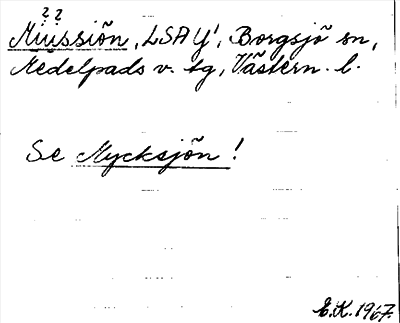 ? ?
Miussiön, LSA Y', Borgsjö sn,
Medelpads v. tg, Västern. l.
Se Mycksjön!
E.K. 1967.